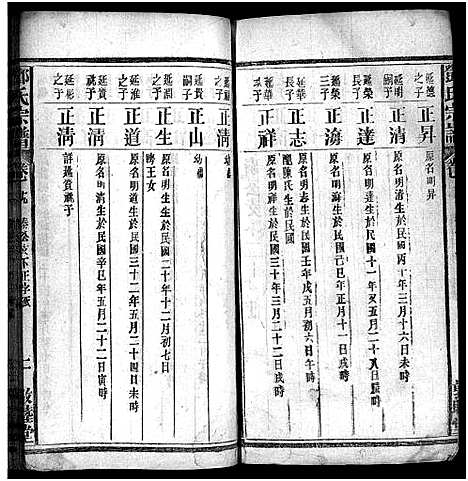 延達之子
正昇
原名明昇
延明之子
正清
原名明清生於民國丙丁年十月十六日未時
延榮次子
正達
原名明達生於民國十一年癸亥五月二十二日辰時
延榮三子
正海
原名明海生於民國己巳年正月十一日戌時
延華長子
正志
原名明志生於民國壬年戌五月初六日午時
配陳氏生於民國
延華次子
正祥
原名明祥生於民國三十年三月二十二日戌時
延貴之子
正山
幼
延湖之子
正生
原名明生生於民國二十年十二月初七日
聘王女
延淮之子
正道
原名明道生於民國三十二年五月二十四日未時
延貴鴻子
正清
原名明清生於民國辛巳年五月二十二日寅時
延彬之子
正清
詳延貴鴻子
鄧氏宗譜
卷十九
二